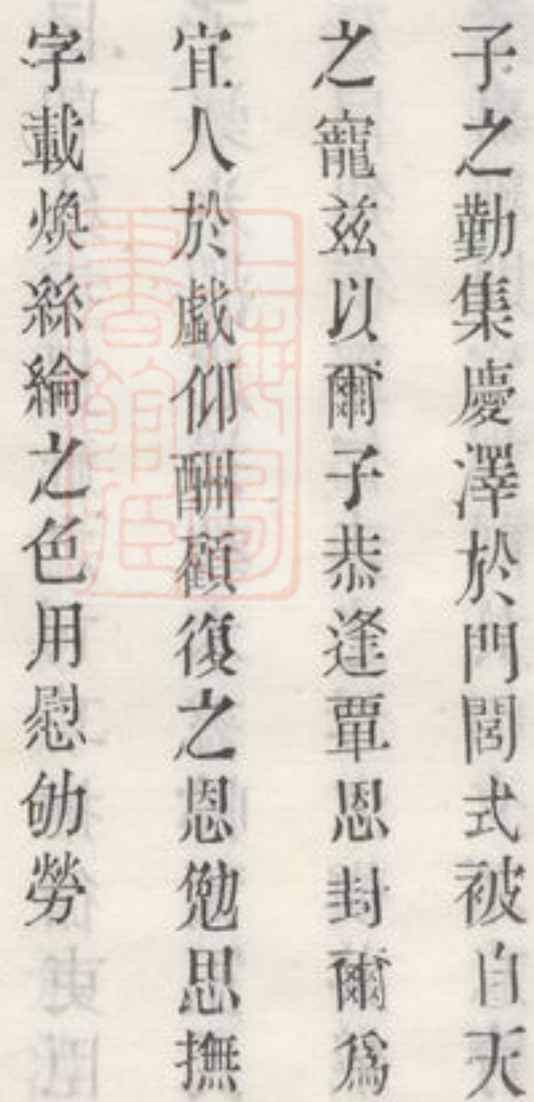 子之勤集慶澤於門閭式被自天
之寵茲以爾子恭逢覃恩封爾爲
宜人於戲仰酬顧復之恩勉思撫
字載煥絲綸之色用慰劬勞